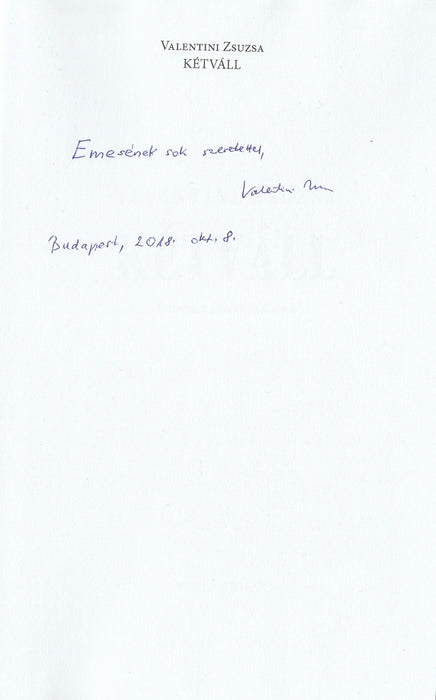 Valentini Zsuzsa
KÉTVÁLL
Emesének sok szeretettel,
Valentini
Budapest, 2018. okt. 8.